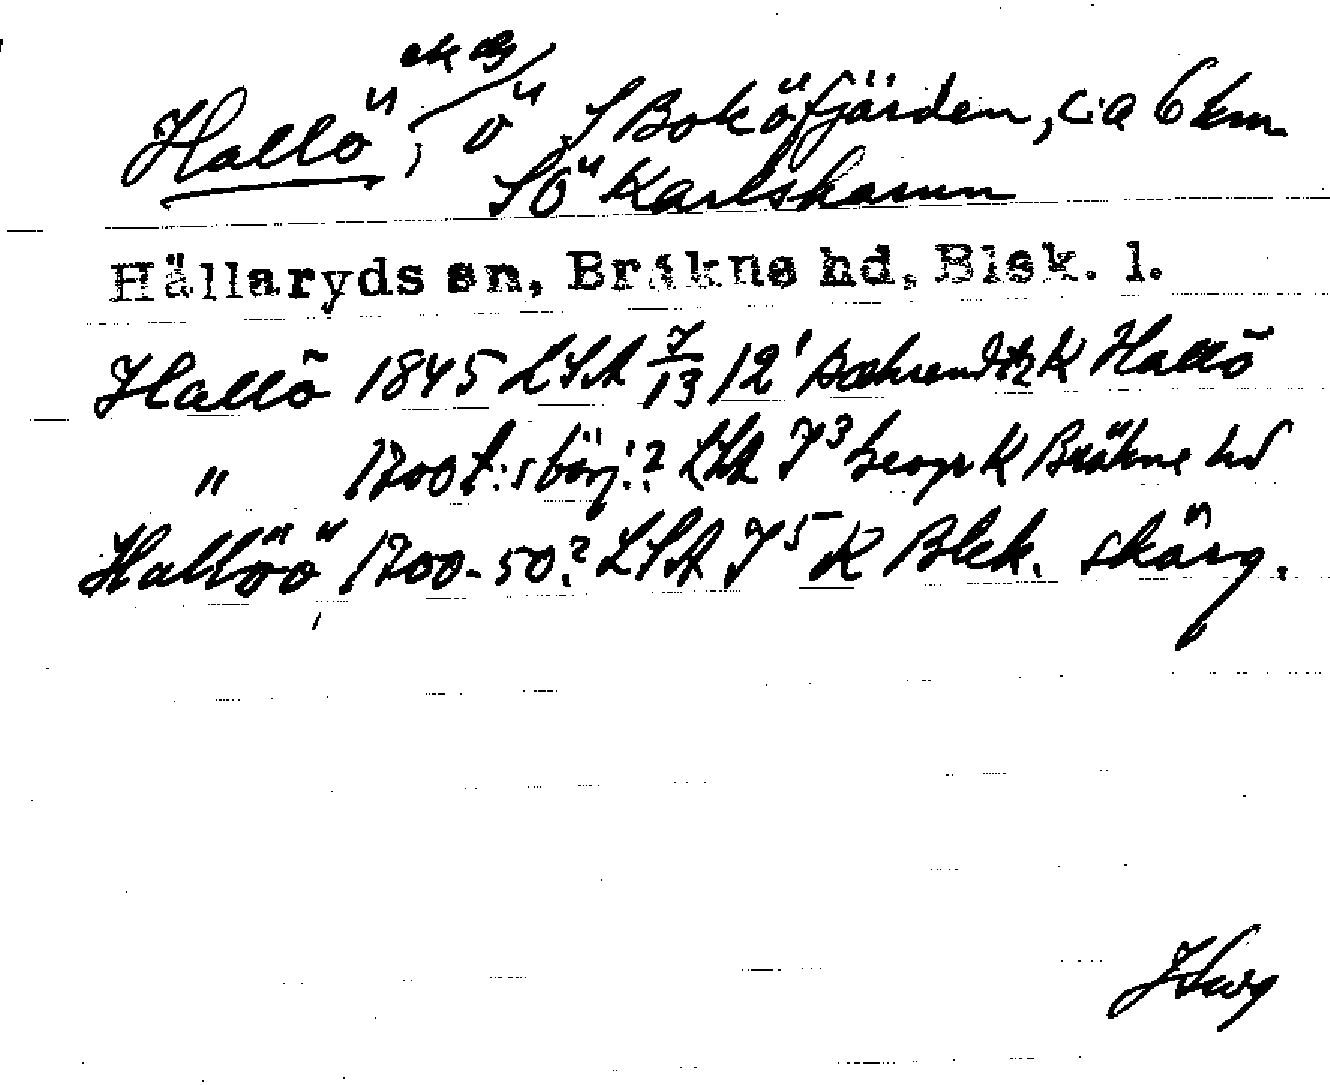 ek dg
Hallö, ö S Boköfjärden, c:a 6 km
SÖ Karlshamn
Hällaryds sn, Bräkne hd, Blek. l.
Hallö 1845 LSA 7/13 12' K Hallö
" 1700 t:s börj.? LSA 7³ Geogr K Bräkne hd
Hallöö 1700-50? LSA 7⁵ K Blek. skärg.